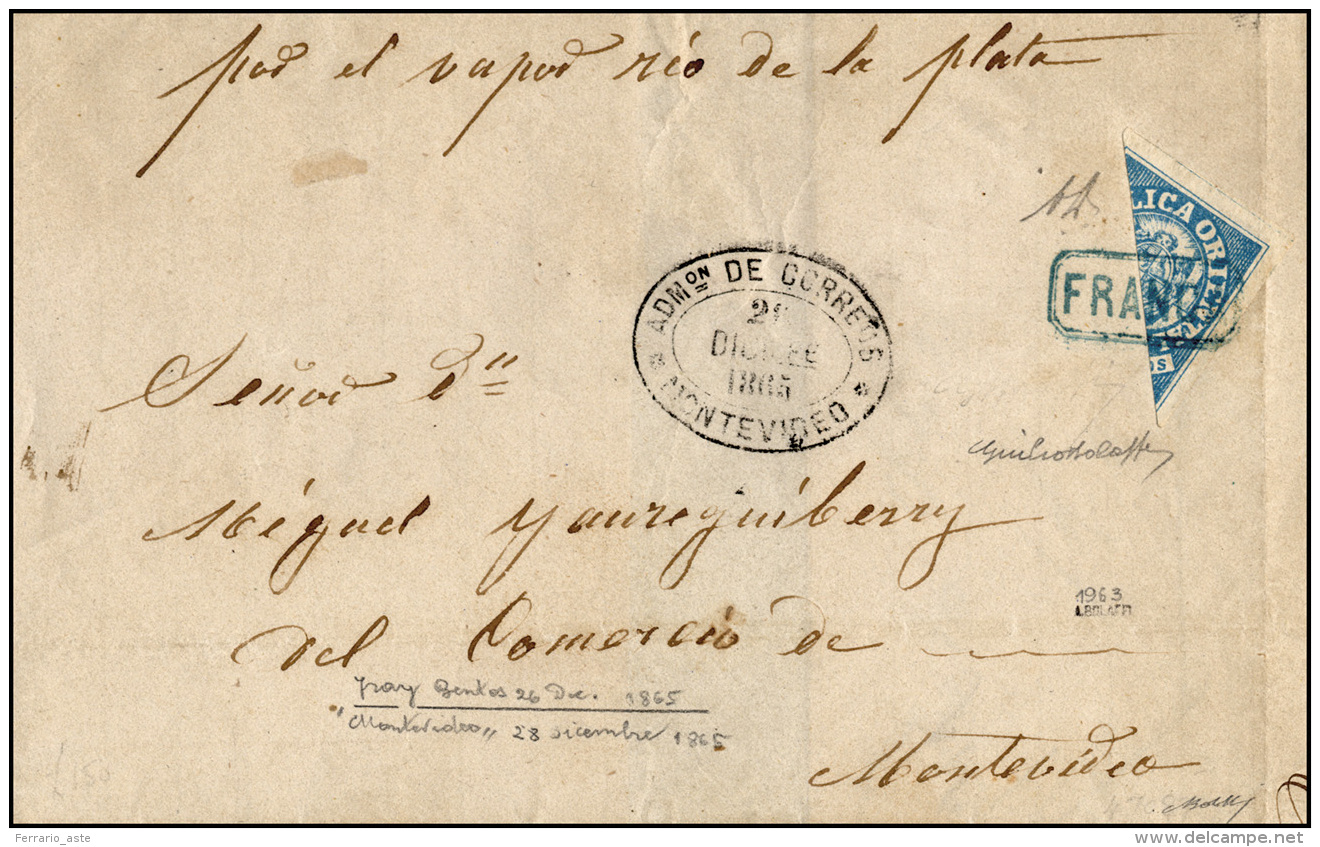 por el vapor río de la plata
LICA ORIE
FRANC
ADMON DE CORREOS
DICBRE
1865
MONTEVIDEO
Señor Dn
Miguel Yaureguiberry
1963
A. BOLAFFI
del Comercio de
Fray Bentos 26 Dic. 1865
"Montevideo„ 28 dicembre 1865
150
Montevideo
Ferrario_aste
delcampe.net